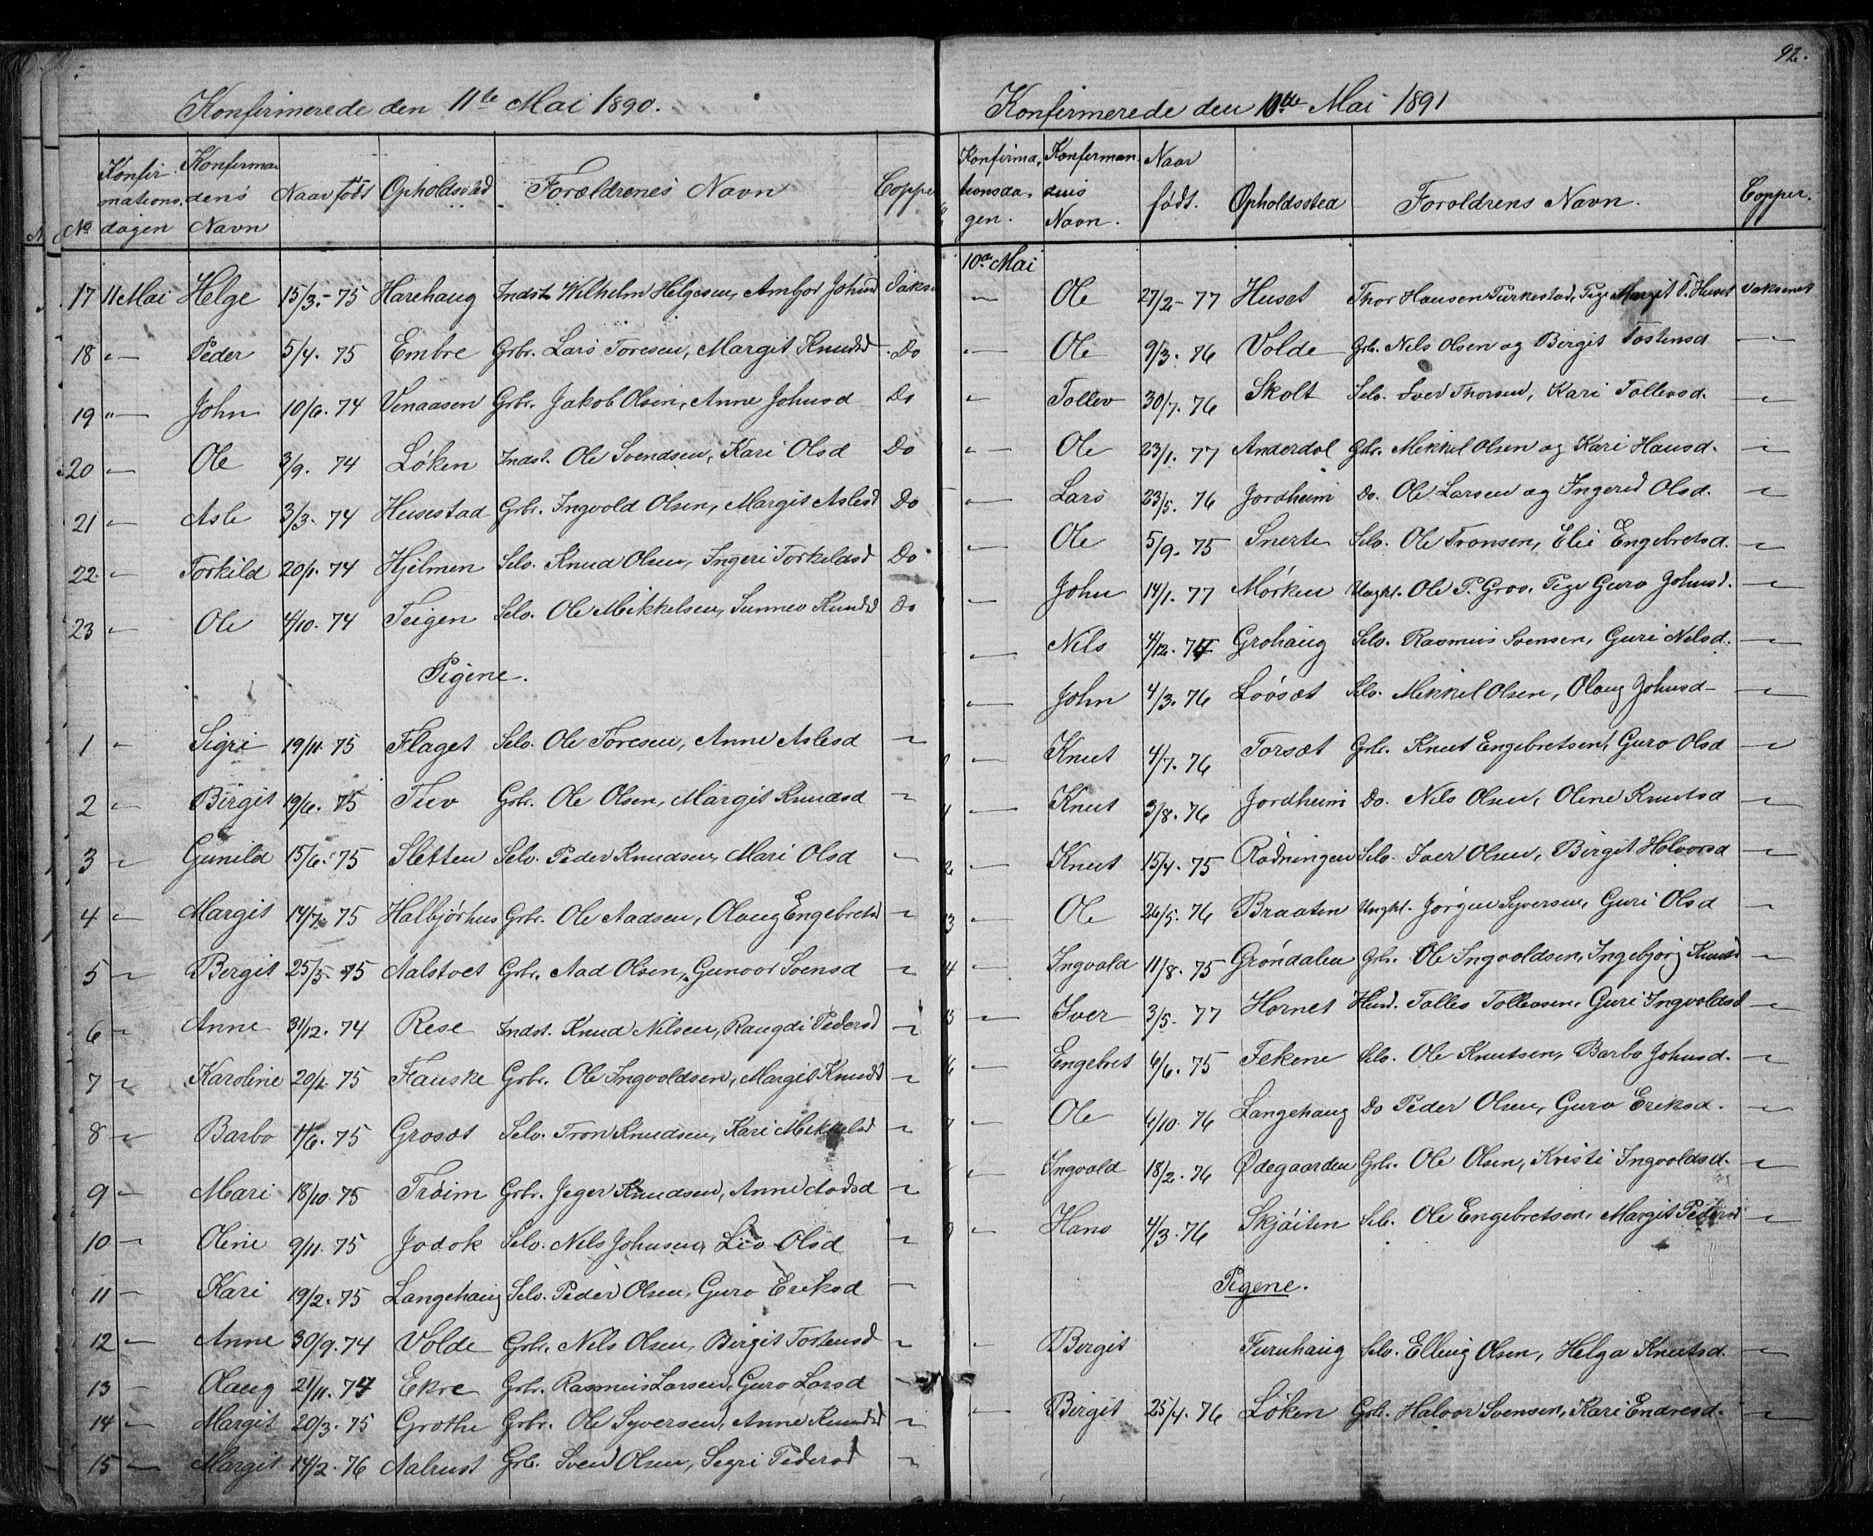 92.
Konfirmerede den 11te Mai 1890.
No Konfirmationsdagen Konfirmandens Navn Naar født Opholdssted Forældrenes Navn Copper
17 11 Mai Helge 15/3-75 Harehaug Indst. Wilhelm Helgesen, Ambjor Johnsd Vaks
18 " Peder 5/4. 75 Embre Grbr. Lars Toresen, Margit Knudsd Do
19 " John 10/6. 74 Venaasen Grbr. Jakob Olsen, Anne Johnsd Do
20 " Ole 3/9. 74 Løken Indst. Ole Svendsen, Kari Olsd Do
21 " Asle 3/3. 74 Husestad Grbr. Ingvold Olsen, Margit Aslesd Do
22 " Torkild 20/1. 74 Hjelmen Selv. Knud Olsen, Ingeri Torkildsd Do
23 " Ole 4/10. 74 Teigen Selv. Ole Mikkelsen, Sunnev Knudsd Do
Pigene.
1 " Sigri 19/11. 75 Flaget Selv. Ole Toresen, Anne Aslesd "
2 " Birgit 19/6. 75 Tuv Grbr. Ole Olsen, Margit Knudsd "
3 " Gunild 15/6. 75 Sletten Selv. Peder Knudsen, Mari Olsd "
4 " Margit 14/7. 75 Halbjørhus Grbr. Ole Aadsen, Olaug Engebretsd "
5 " Bergit 25/5. 75 Aalstvet Grbr. Aad Olsen, Gunvor Svensd "
6 " Anne 31/12. 74 Rese Indst. Knud Nilsen, Rangdi Pedersd "
7 " Karoline 75 Fauske Grbr. Ole Ingvoldsen, Margit Knudsd "
8 " Barbo 75 Grosæt Selv. Tron Knudsen, Kari Mikkelsd "
9 " Mari 18/10. 75 Trøim Grbr. Jeger Knudsen, Anne Aadsd "
10 " Oline 9/11. 75 Jodok Selv. Nils Johnsen, Liv Olsd "
11 " Kari 19/2. 75 Langehaug Selv. Peder Olsen, Guro Eriksd "
12 " Anne 30/9. 74 Volde Grbr. Nils Olsen, Birgit Tostensd "
13 " Olaug 21/11. 74 Ekre Grbr. Rasmus Larsen, Guro Larsd "
14 " Margit 20/3. 75 Grothe Grbr. Ole Syversen, Anne Knudsd "
15 " Margit 14/2. 76 Aalrust Grb. Sven Olsen, Segri Pedersd "
Konfirmerede den 10de Mai 1891
Konfirmationsdagen. Konfirmandens Navn. Naar født. Opholdssted Foroldrens Navn. Copper.
10de Mai
" Ole 27/2- 77 Huset Thor Hansen Turkestad, Pige Margit T. Huset Vaksenert
" Ole 9/3. 76 Volde Grb. Nils Olsen og Birgit Tostensd "
" Tollev 30/7. 76 Skolt Selv. Iver Thorsen, Kari Tollevsd. "
" Ole 23/1. 77 Anderdal Grbr. Mikkel Olsen og Kari Hansd. "
" Lars 23/5. 76 Jordheim Do. Ole Larsen og Ingered Olsd. "
" Ole 5/9. 75 Snerte Selv. Ole Tronsen, Eli Engebretsd. "
" John 14/1. 77 Mørken Unghl. Ole P. Gro, Pige Guro Johnsd. "
" Nils 4/12. 74 Grohaug Selv. Rasmus Svensen, Guri Nilsd. "
" John 4/3. 76 Lovsæt Selv. Mikkel Olsen, Olaug Johnsd- "
" Knut 4/7. 76 Torsæt Grb. Knut Engebretsen, Guro Olsd "
" Knut 3/8. 76 Jordheim Do. Nils Olsen, Oline Knutsd "
" Knut 15/4. 75 Rødningen Selv. Iver Olsen, Birgit Halvorsd "
" Ole 26/5. 76 Braaten Unghl. Jørgen Syversen, Guri Olsd "
" Ingvald 11/8. 75 Grøndalen Grb. Ole Ingvoldsen, Ingebjørg Knudsd "
" Iver 3/5. 77 Hornet Husd. Tolles Tollevsen, Guri Ingvoldsd "
" Engebret 6/6. 75 Fekene Selv. Ole Knutsen, Barbo Johnsd. "
" Ole 6/10. 76 Langehaug Do Peder Olsen, Guro Eriksd. "
" Ingvald 18/2. 76 Ødegaarden Grbr. Ole Olsen, Kristi Ingvoldsd. "
" Hans 4/3. 76 Skjøiten Selv. Ole Engebretsen, Margit Pedersd "
Pigene.
" Birgit Furuhaug Selv. Elling Olsen, Helga Knutsd. "
" Birgit 25/4. 76 Løken Grb. Halvor Svensen, Kari Endresd. "